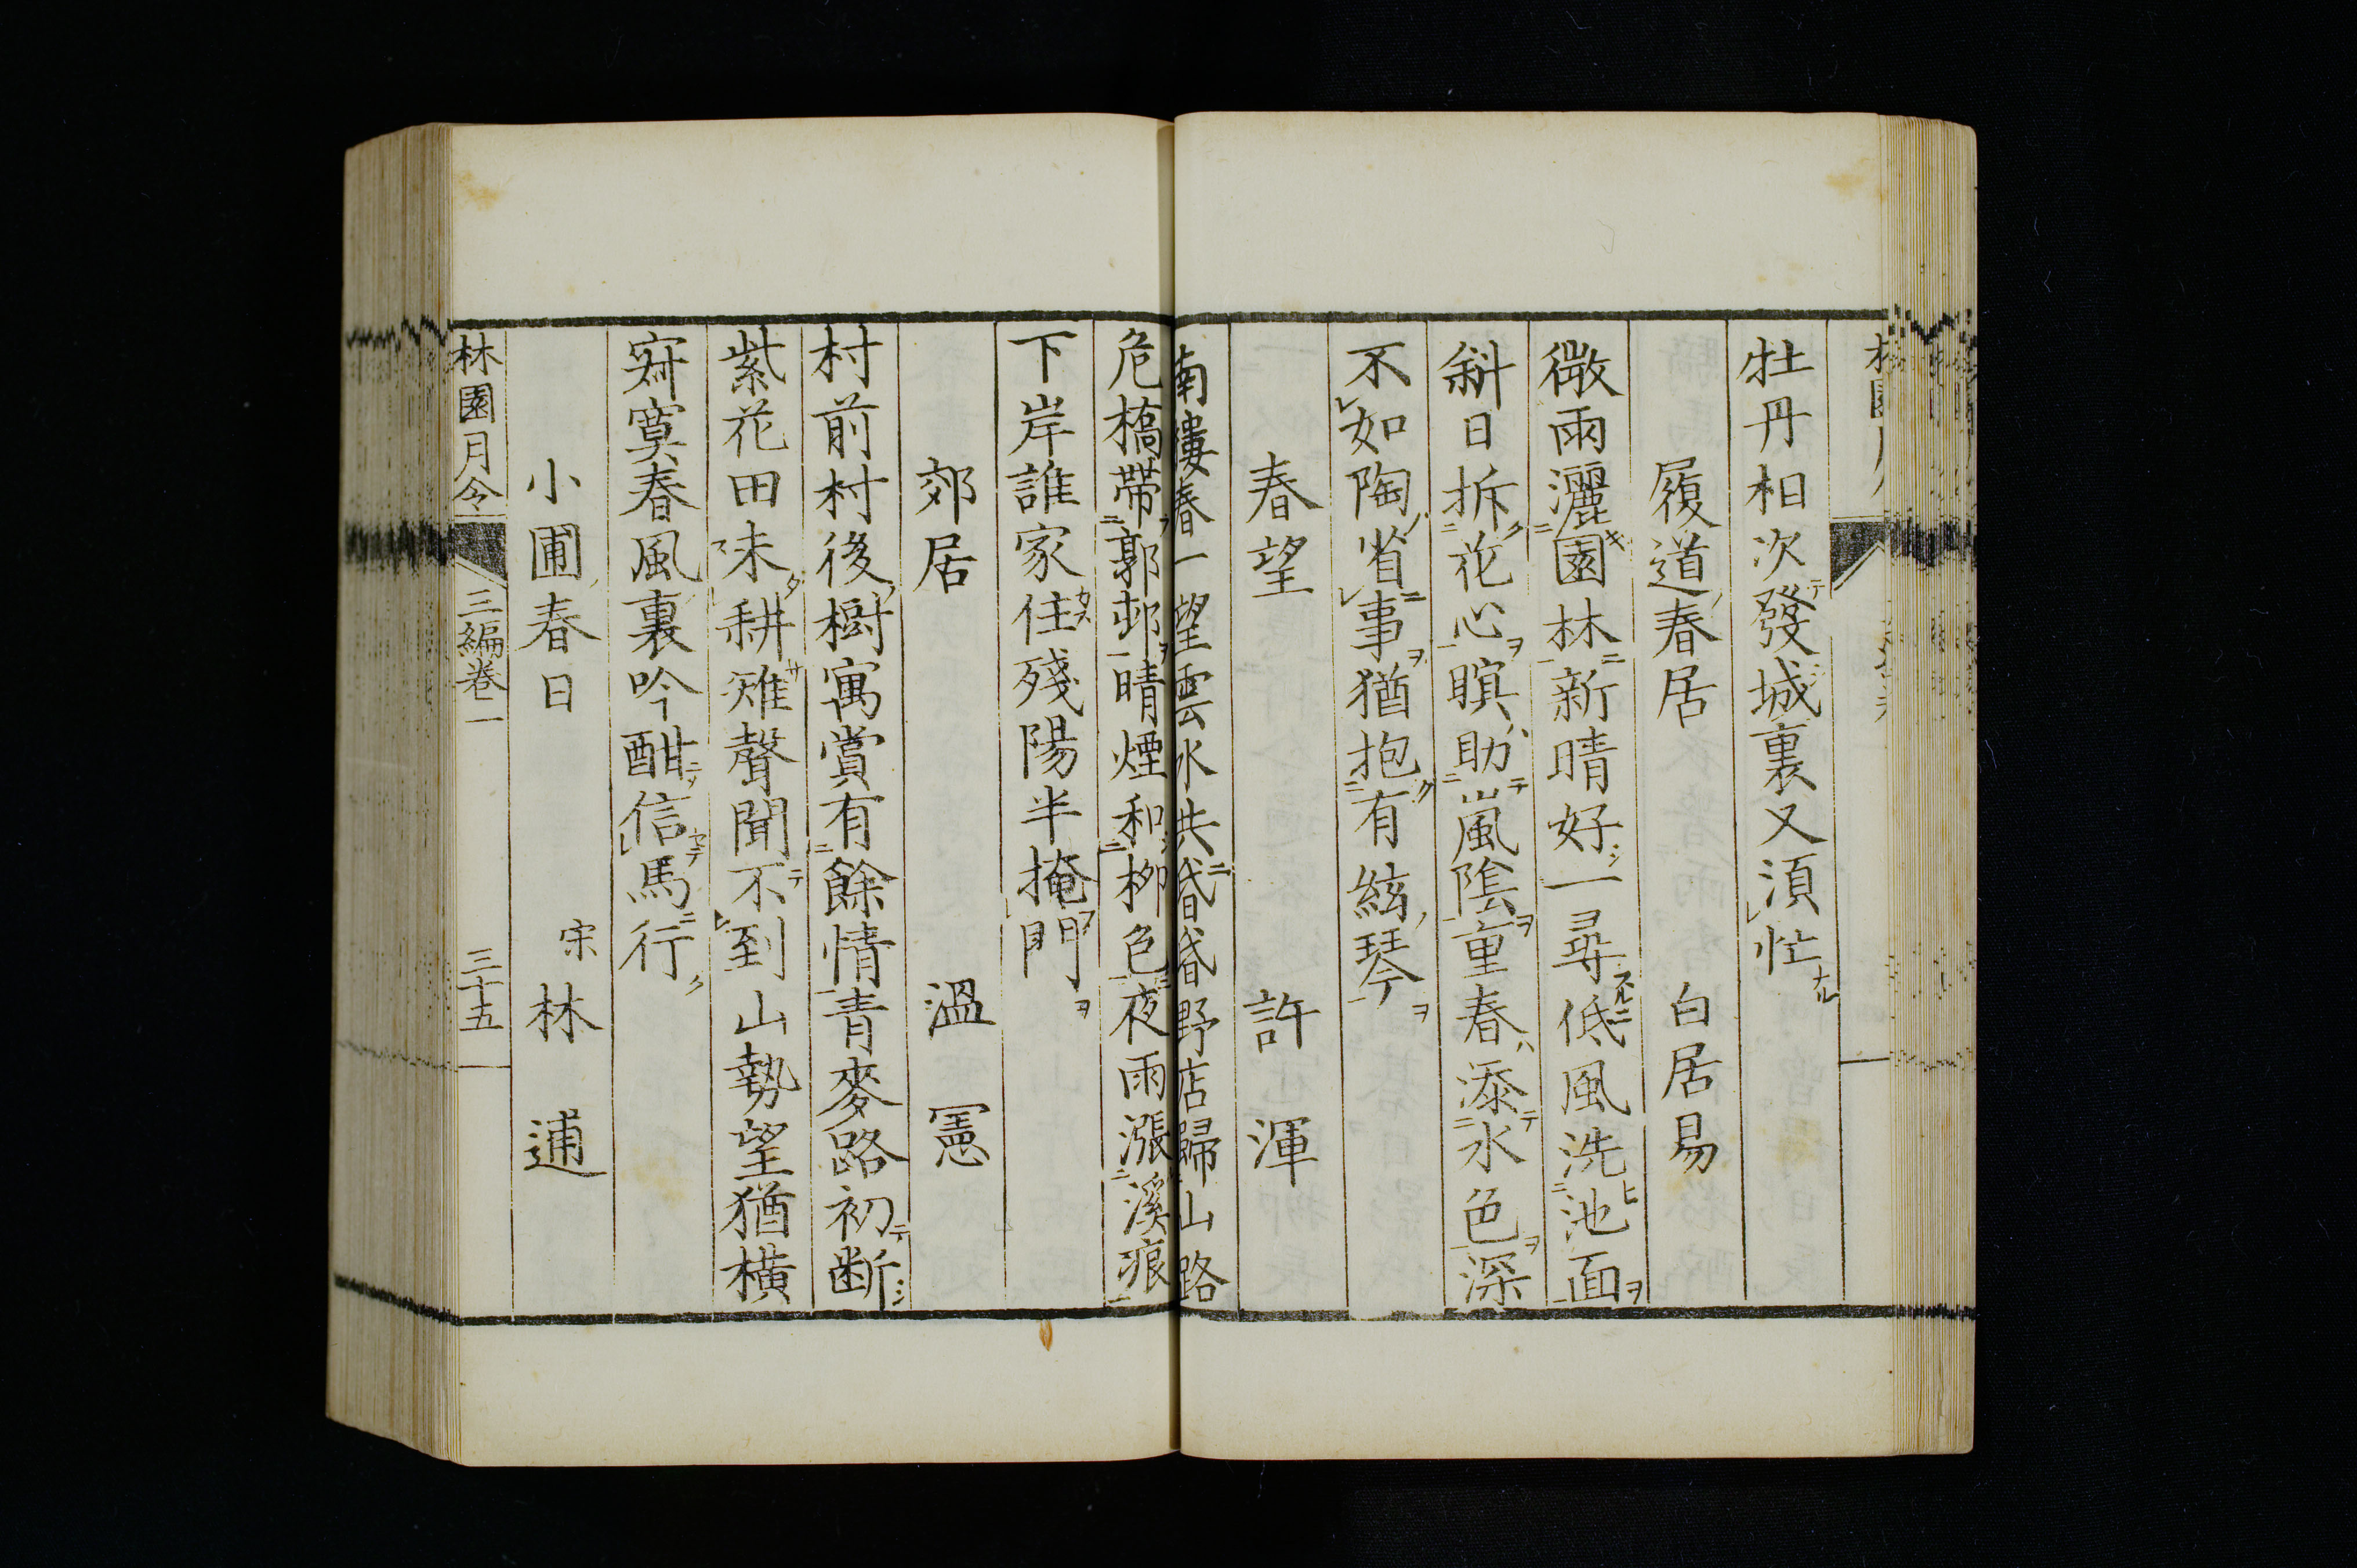 牡丹相次發城裏又須忙
履道春居 白居易
微雨灑園林新晴好一尋低風洗池面
斜日拆花心暝助嵐陰重春添水色深
不如陶省事猶抱有絃琴
春望 許渾
南樓春一望雲水共昏昏野店歸山路
危橋帶郭邨晴煙和柳色夜雨漲溪痕
下岸誰家住殘陽半掩門
郊居 溫憲
村前村後樹寓賞有餘情青麥路初断
紫花田未耕雉聲聞不到山勢望猶橫
寂寞春風裏吟酣信馬行
小圃春日 宋 林逋
林園月令 三編卷一 三十五